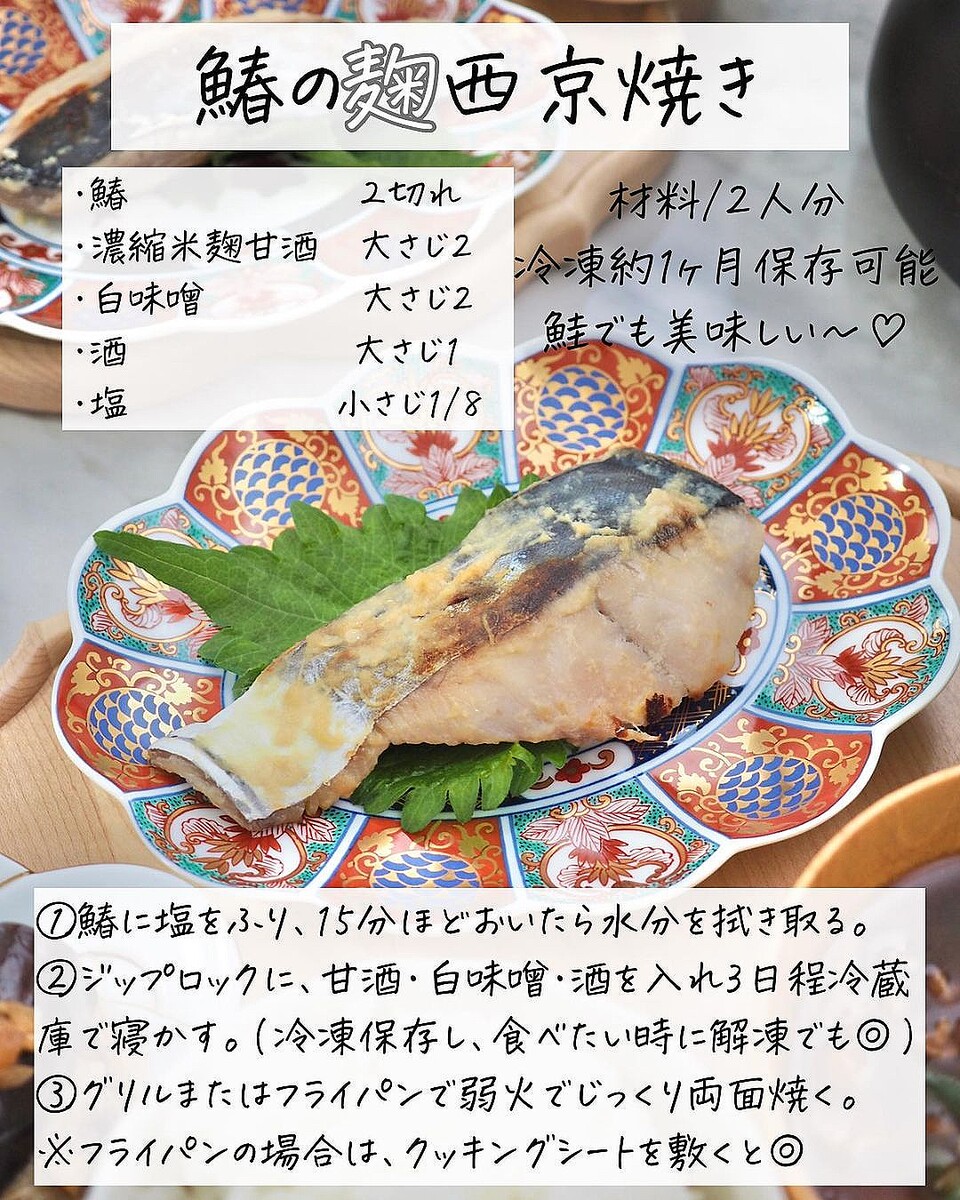 鰆の麹西京焼き
・鰆 2切れ
・濃縮米麹甘酒 大さじ2
・白味噌 大さじ2
・酒 大さじ1
・塩 小さじ1/8
材料/2人分
冷凍約1ヶ月保存可能
鮭でも美味しい〜♡
①鰆に塩をふり、15分ほどおいたら水分を拭き取る。
②ジップロックに、甘酒・白味噌・酒を入れ3日程冷蔵
庫で寝かす。(冷凍保存し、食べたい時に解凍でも◎)
③グリルまたはフライパンで弱火でじっくり両面焼く。
※フライパンの場合は、クッキングシートを敷くと◎